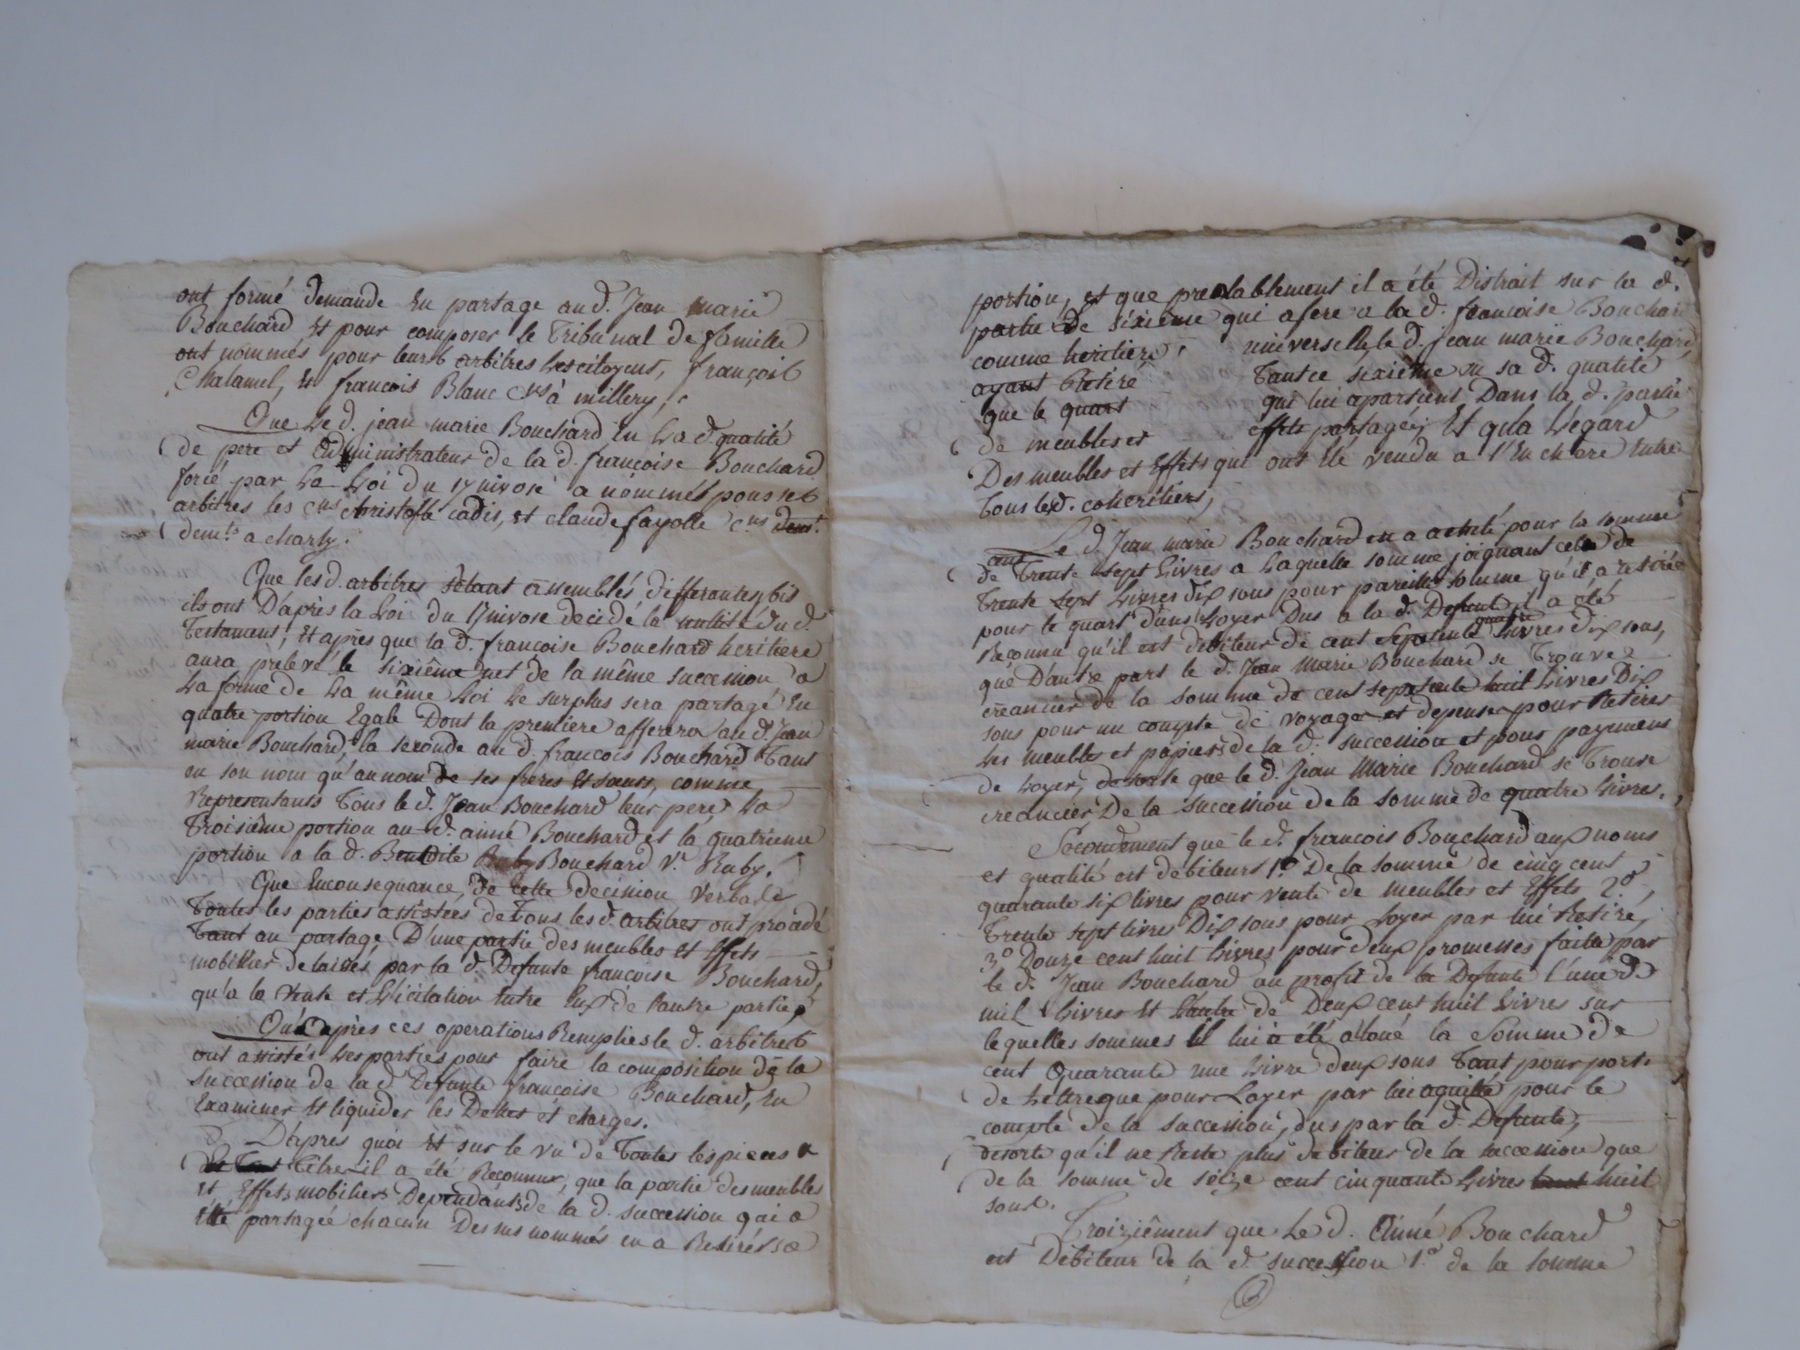 ont formé demande en partage au d. Jean marie
Bouchard et pour composer le Tribunal de famille
ont nommés pour leurs arbitres les citoyens, françois
Chalamel, et françois Blanc cns à millery,
Que le d. jean marie Bouchard en la d. qualité
de pere et administrateur de la d. françoise Bouchard
forcé par la Loi du 17 nivose a nommés pour ses
arbitres les cns christofle cadis, et claude fayolle cns demt.
demts. a charly.
Que les d. arbitres s'etant assemblés differentes fois
ils ont D'après la Loi du 17 nivose decidé la nullité du d.
Testament, et après que la d. françoise Bouchard heritière
aura prelevé le sixième net de la même succession a
La forme de La même Loi le surplus sera partagé en
quatre portion Egale Dont la première afferera au d. Jean
marie Bouchard, la seconde au d. françois Bouchard Tant
en son nom qu'au nom de ses frères et sœurs, comme
Representants Tous le d. Jean Bouchard leur père, La
Troisième portion au d. aimé Bouchard et la quatrieme
portion a la d. Benedite Ruby Bouchard Ve. Ruby.
Que Enconsequance, de cette decision verbale
Toutes les parties assistées de Tous les d. arbitres ont procédé
Tant au partage D'une partie des meubles et Effets
mobilier delaissés par la d. Defunte françoise Bouchard,
qu'a la vente et Licitation entre Eux de l'autre partie,
Qu'après ces operations Remplies le d. arbitres
ont assistés les parties pour faire la composition de la
succession de la d. Defunte françoise Bouchard, En
Examiner et liquider les Dettes et charges.
D'après quoi et sur le vu de Toutes les pieces a
Titre il a été Reconnue, que la partie des meubles
et Effets mobiliers Dependants de la d. succession qui a
Eté partagée chacun Des sus nommés en a Retiré sa
portion, et que prealablement il a été Distrait sur la d.
partie De sixième qui afere a la d. françoise Bouchard
comme heritière universelle, le d. jean marie Bouchard,
ayant Retiré Tant ce sixième en sa d. qualité
que le quart qui lui apartient Dans la d. partie
de meubles et effets partagée, Et qu'a L'égard
Des meubles et Effets qui ont été vendu a l'Enchere Entre
Tous les d. coheritiers,
Le d. Jean marie Bouchard en a acheté pour la somme
cent
de Trente sept Livres a Laquelle somme joignant celle de
Trente sept Livres dix sous pour pareille somme qu'il a retirée
pour le quart d'un Loyer Dus a la d. Defunte, il a été
Reconnu qu'il est debiteur de cent septante quatre Livres dix sous,
que D'autre part le d. Jean Marie Bouchard se Trouve
créancier de la somme de cent septante huit Livres Dix
sous pour un compte de voyage et depense pour Retirer
les meubles et papiers de la d. succession et pour payement
de Loyer, de sorte que le d. Jean Marie Bouchard se Trouve
creancier De la succession de la somme de quatre Livres.
Secondement que le d. françois Bouchard aux noms
et qualité est debiteurs 1o. De la somme de cinq cent
quarante six livres pour vente de meubles et Effets 2o.
Trente sept livres Dix sous pour Loyer par lui Retiré,
3o Douze cent huit Livres pour deux promesses faite par
le d. Jean Bouchard au profit de la Defunte l'une de
mil Livres et L'autre de Deux cent huit Livres sur
lequelles sommes il lui a été aloué la Somme de
cent Quarante une Livre deux sous Tant pour port
de Lettre que pour Loyer par lui aquitté pour le
compte de la succession, dus par la d. Defunte,
desorte qu'il ne Reste plus debiteur de la succession que
de la somme de seize cent cinquante Livres huit
sous.
Troizièment que Le d. Aimé Bouchard
est Debiteur de la d. succession 1o. de la somme